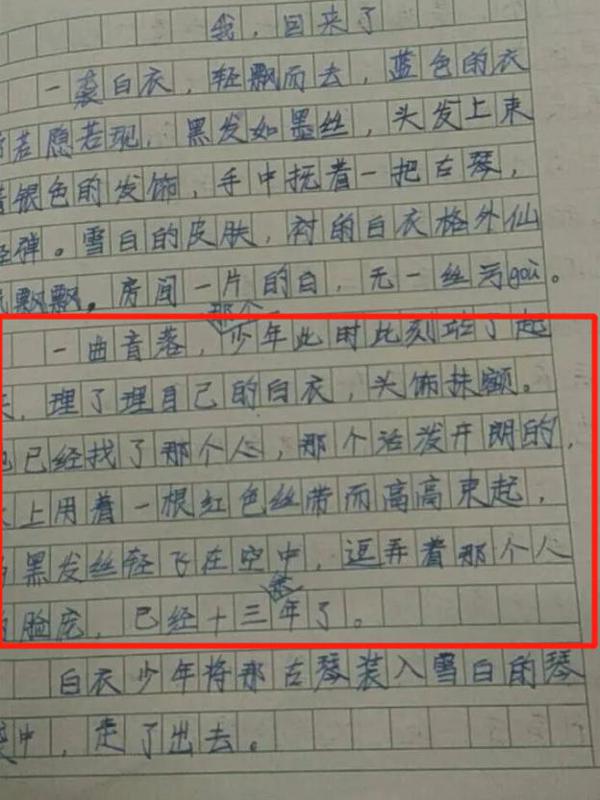 我，回来了
一袭白衣，轻飘而去，蓝色的衣
若愿若现，黑发如墨丝，头发上束
着银色的发饰，手中抚着一把古琴，
轻弹。雪白的皮肤，衬的白衣格外仙
飘飘。房间一片的白，无一丝污gai。
一曲音落，那个少年此时此刻站了起
来，理了理自己的白衣，头饰抹额。
已经找了那个人，那个活泼开朗的，
上用着一根红色丝带而高高束起，
黑发丝轻飞在空中，逗弄着那个人
脸庞，已经十三年了。
白衣少年将那古琴装入雪白的琴
中，走了出去。